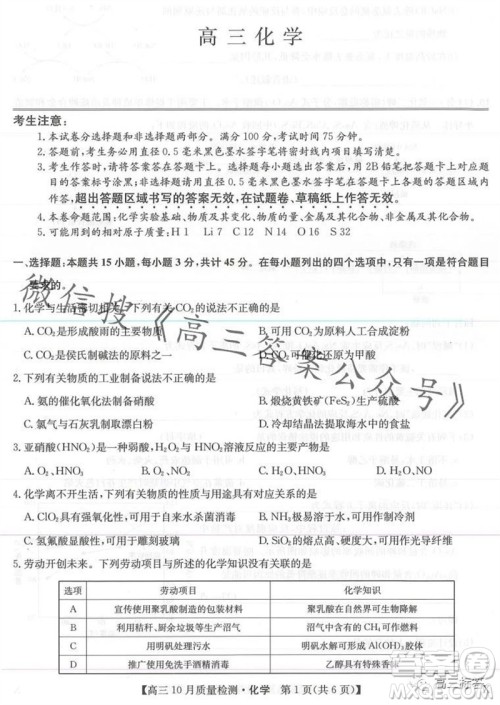 高三化学
考生注意：
1.本试卷分选择题和非选择题两部分。满分100分，考试时间75分钟。
2.答题前，考生务必用直径0.5毫米黑色墨水签字笔将密封线内项目填写清楚。
3.考生作答时，请将答案答在答题卡上。选择题每小题选出答案后，用2B铅笔把答题卡上对应题目的答案标号涂黑；非选择题请用直径0.5毫米黑色墨水签字笔在答题卡上各题的答题区域内作答，
超出答题区域书写的答案无效，在试题卷、草稿纸上作答无效。
4.本卷命题范围：化学实验基础、物质及其变化、金属及其化合物、非金属及其化合物。
5.可能用到的相对原子质量：H 1 Li 7 O 16 S 32
一、选择题：本题共15小题，每小题3分，共计45分。在每小题列出的四个选项中，只有一项是符合题目
要求的。
1.化学与生活密切相关，下列有关CO2的说法不正确的是
A.CO2是形成酸雨的主要物质
B.CO2在一定条件下可人工合成淀粉
C.CO2是侯氏制碱法的原料之一
D.CO2可催化还原为甲酸
2.下列有关物质的工业制备说法不正确的是
A.氨的催化氧化法制备硝酸
B.煅烧黄铁矿(FeS2)生产硫酸
C.氯气与石灰乳制取漂白粉
D.冷却结晶法提取海水中的食盐
3.亚硝酸(HNO2)是一种弱酸，HNO2与双氧水溶液反应的产物是
A.O2、HNO3
B.H2O、HNO3
C.O2、NO
D.H2O、NO
4.化学离不开生活，下列有关物质的性质与用途具有对应关系的是
A.ClO2具有强氧化性，可用于自来水杀菌消毒
B.NH3极易溶于水，可用作制冷剂
C.氢氟酸显酸性，可用于雕刻玻璃
D.SiO2的熔点高、硬度大，可用作光导纤维
5.劳动开创未来。下列劳动项目与所述的化学知识没有关联的是
选项 劳动项目 化学知识
A 宣传使用聚乳酸制造的包装材料 聚乳酸在自然界可生物降解
B 利用秸秆、厨余垃圾等生产沼气 沼气中的CH4可作燃料
C 用明矾处理污水 明矾溶解形成Al(OH)3胶体
D 推广使用免洗手酒精消毒 乙醇具有特殊香味
【高三10月质量检测·化学 第1页(共6页)】
微信搜《高三答案公众号》